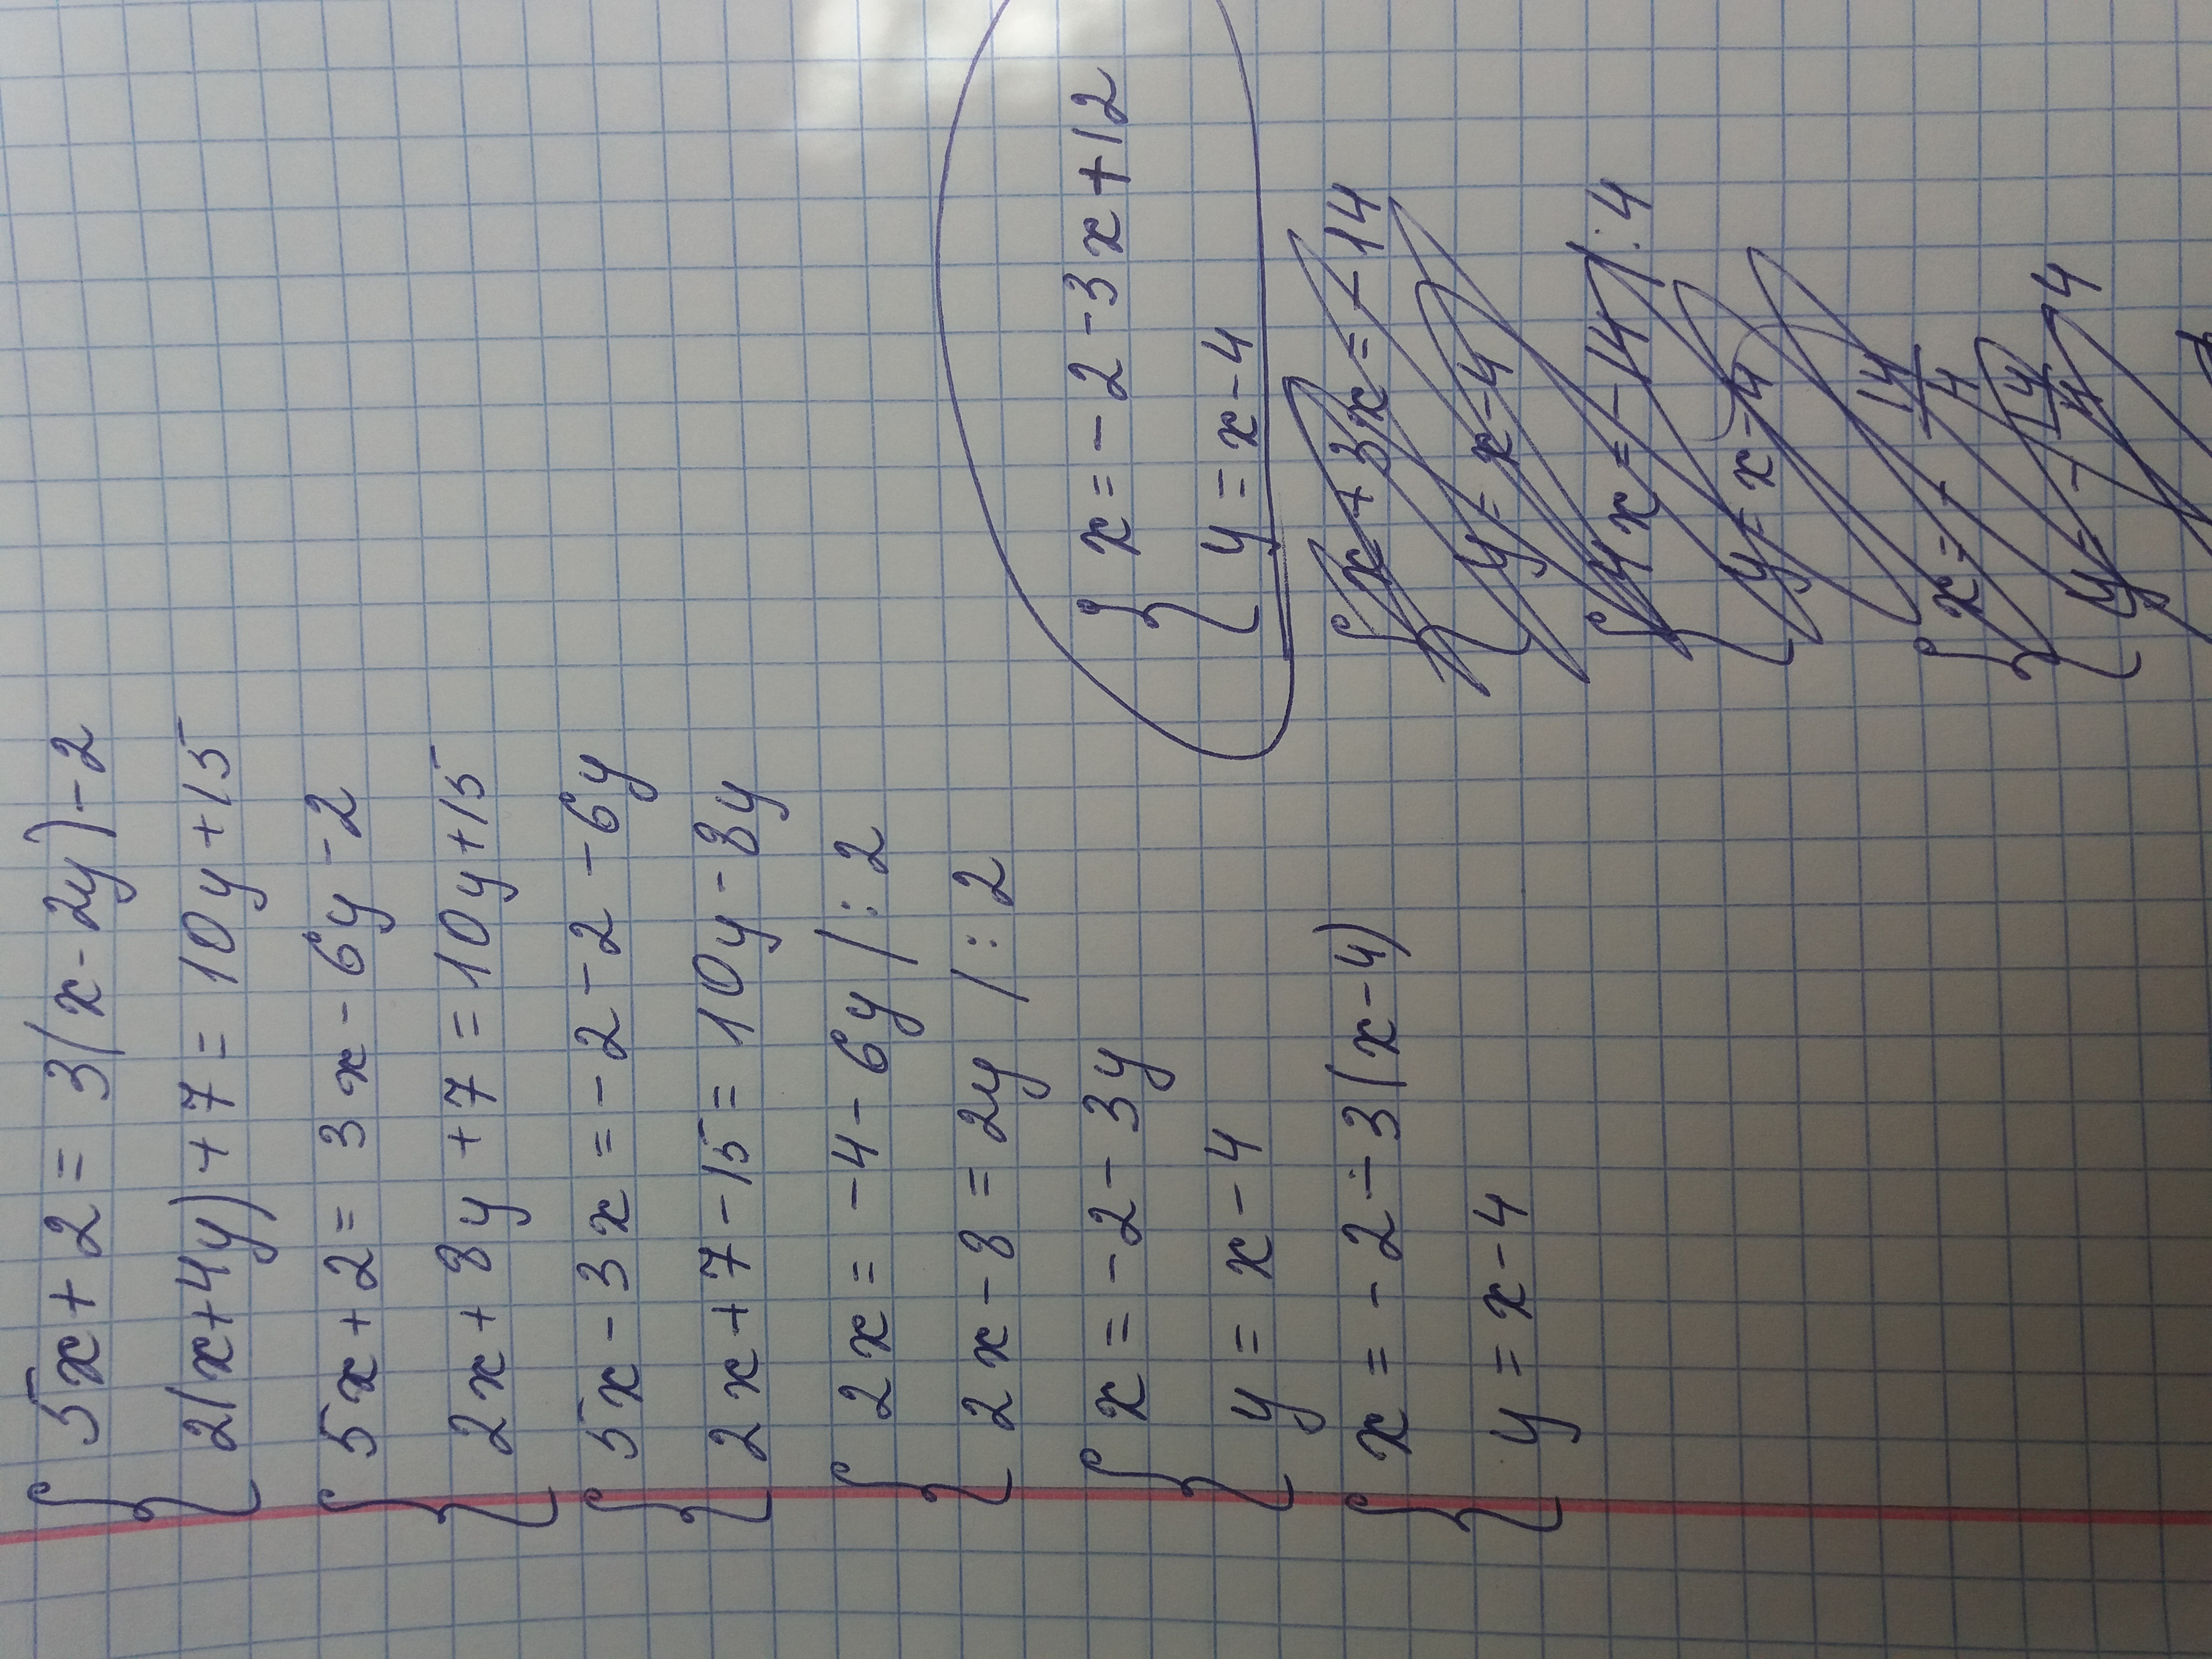 5x+2=3(x-2y)-2
2(x+4y)+7=10y+15
5x+2=3x-6y-2
2x+8y+7=10y+15
5x-3x=-2-2-6y
2x+7-15=10y-8y
2x=-4-6y/:2
2x-8=2y/:2
x=-2-3y
y=x-4
x=-2-3(x-4)
y=x-4
x=-2-3x+12
y=x-4
x+3x=-14
y=x-4
4x=-14/:4
y=x-4
x=-14/4
y=-14/4-4